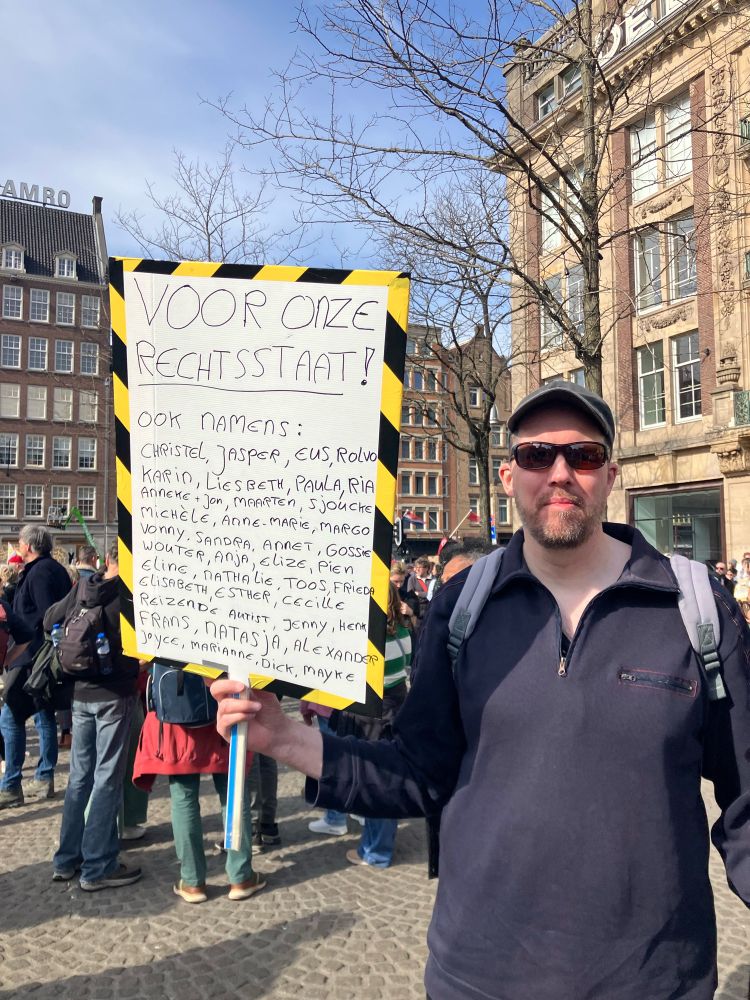 AMRO
DE
VOOR ONZE
RECHTSSTAAT!
OOK NAMENS:
CHRISTEL, JASPER, EUS, ROLVO
KARIN, LIESBETH, PAULA, RIA
ANNEKE + JON, MAARTEN, SJOUCHE
MICHÈLE, ANNE-MARIE, MARGO
VONNY, SANDRA, ANNET, GOSSIE
WOUTER, ANJA, ELIZE, PIEN
ELINE, NATHALIE, TOOS, FRIEDA
ELISABETH, ESTHER, CECILLE
REIZENDE AUTIST, JENNY, HENK
FRANS, NATASJA, ALEXANDER
JOYCE, MARIANNE, DICK, MAYKE